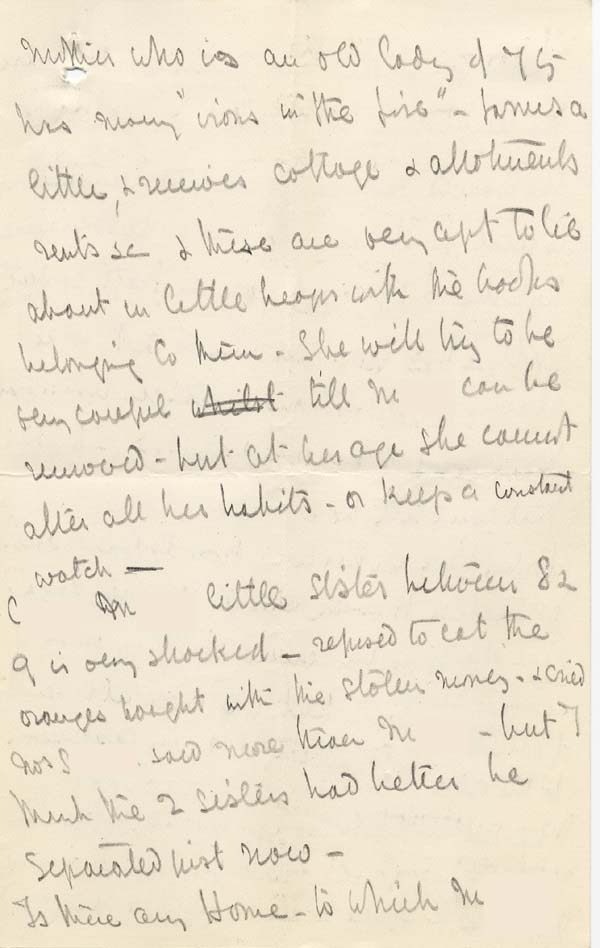 Mother who is an old lady of 75
has many "irons in the fire" - farms a
little, & receives cottage & allotments
rents &c & these are very apt to lie
about in little heaps with the books
belonging to them - She will try to be
very careful whilst till M can be
removed - but at her age she cannot
alter all her habits - or keep a constant
watch —
C M little sister between 8 &
9 is very shocked - refused to eat the
oranges bought with the stolen money - & cried
Mrs S said more than M - but I
think the 2 sisters had better be
separated just now -
Is there any Home - to which M